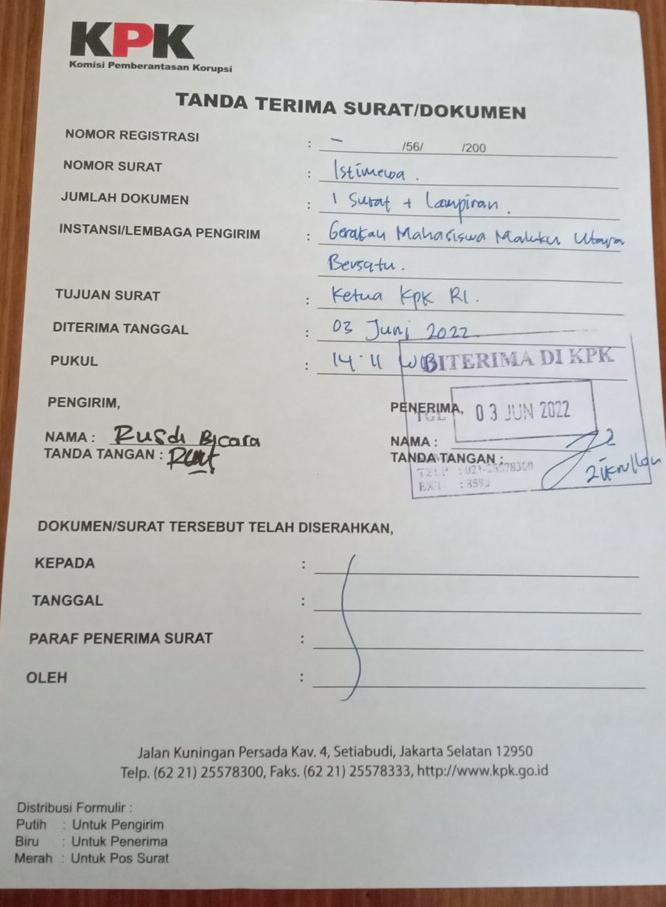 KPK
Komisi Pemberantasan Korupsi
TANDA TERIMA SURAT/DOKUMEN
NOMOR REGISTRASI : - /56/ /200
NOMOR SURAT : Istimewa.
JUMLAH DOKUMEN : 1 Surat + Lampiran.
INSTANSI/LEMBAGA PENGIRIM : Gerakan Mahasiswa Maluku Utara
Bersatu.
TUJUAN SURAT : Ketua KPK RI.
DITERIMA TANGGAL : 03 Juni 2022
PUKUL : 14.11 WIB
DITERIMA DI KPK
PENGIRIM, PENERIMA,
TGL 03 JUN 2022
NAMA : Rusdi Bicara NAMA :
TANDA TANGAN : TANDA TANGAN :
TELP : 021-25578300
EXT
DOKUMEN/SURAT TERSEBUT TELAH DISERAHKAN,
KEPADA :
TANGGAL :
PARAF PENERIMA SURAT :
OLEH :
Jalan Kuningan Persada Kav. 4, Setiabudi, Jakarta Selatan 12950
Telp. (62 21) 25578300, Faks. (62 21) 25578333, http://www.kpk.go.id
Distribusi Formulir :
Putih : Untuk Pengirim
Biru : Untuk Penerima
Merah : Untuk Pos Surat